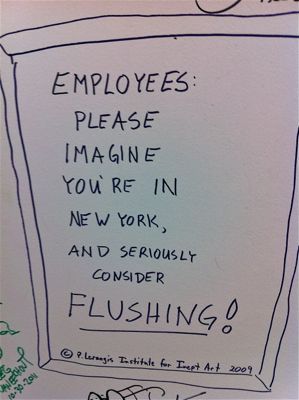 EMPLOYEES:
PLEASE
IMAGINE
YOU'RE IN
NEW YORK,
AND SERIOUSLY
CONSIDER
FLUSHING!
© P. Lerangis Institute for Inept Art 2009
10-20-2011